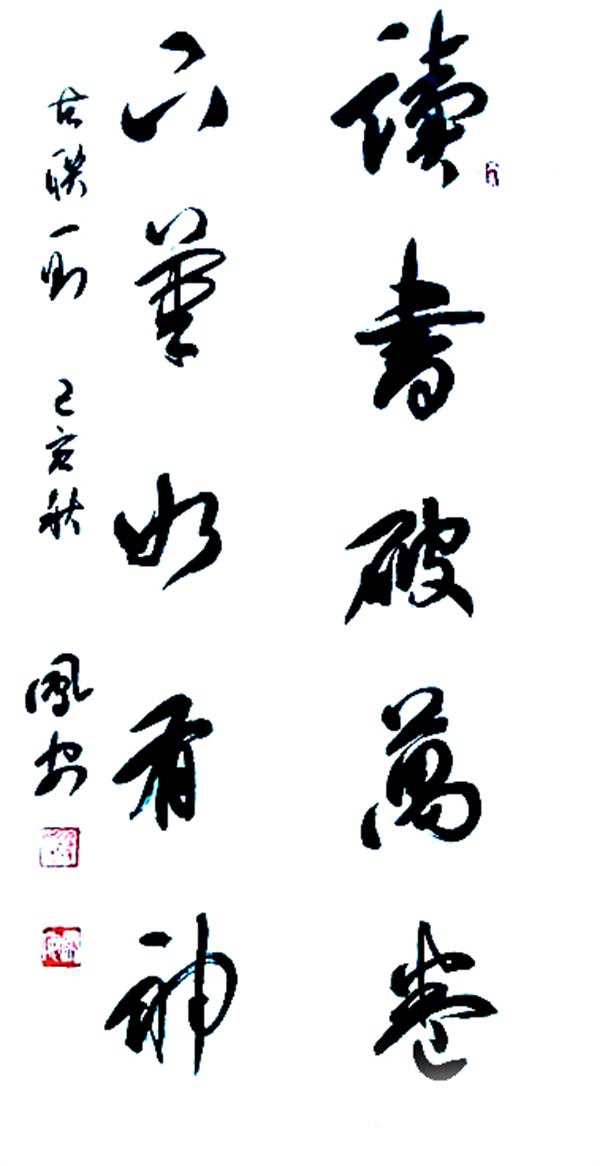 讀書破萬卷
下筆如有神
古聯一則 己亥秋 鳳安